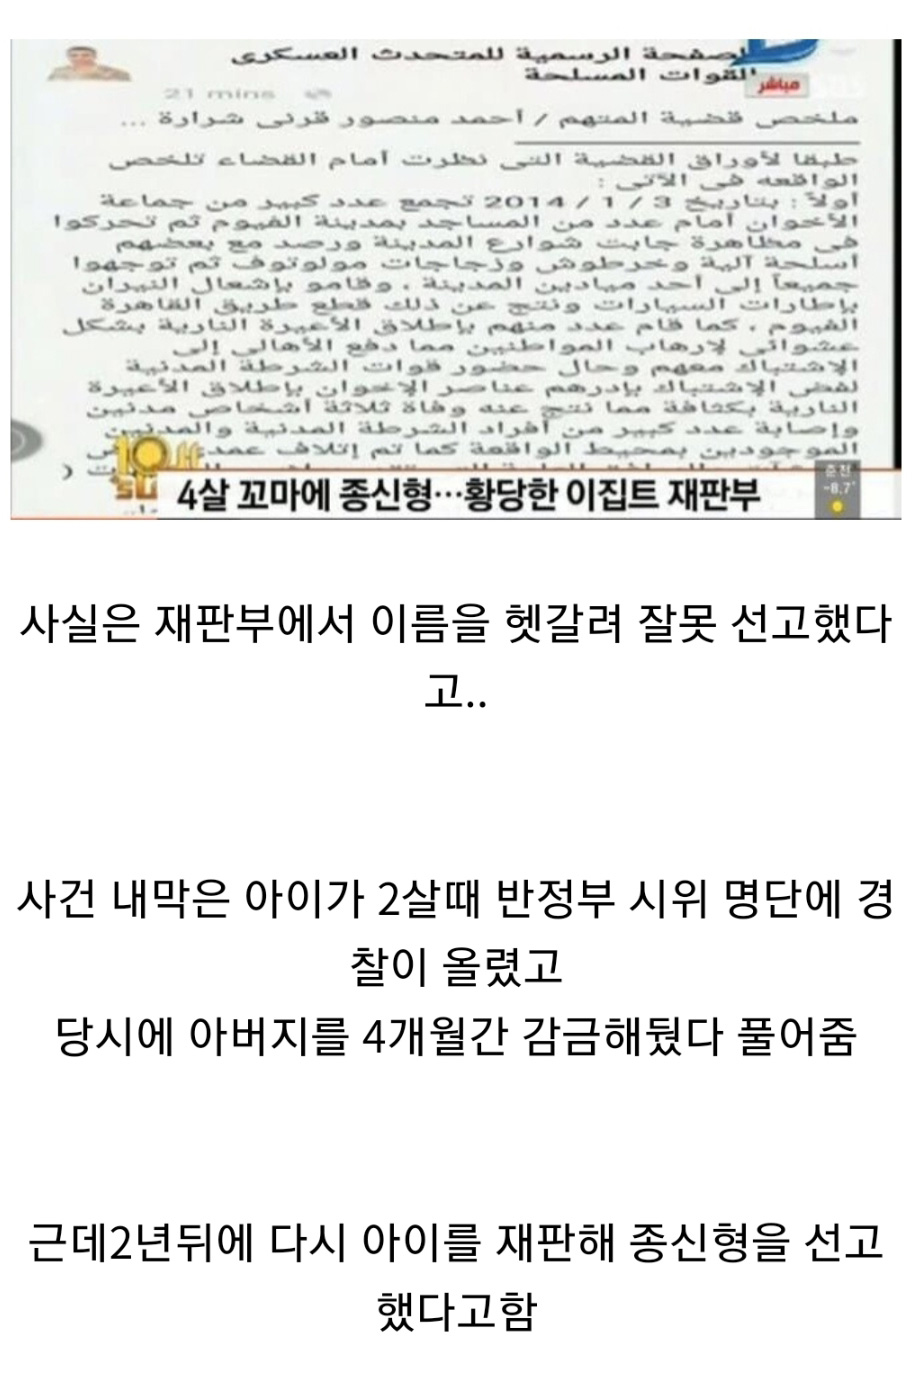 الصفحة الرسمية للمتحدث العسكرى
للقوات المسلحة
مباشر
21 mins
ملخص قضية المتهم / أحمد منصور قرنى شرارة ...
طبقا لأوراق القضية التى نظرت أمام القضاء تلخص
الواقعه فى الآتى :
أولاً : بتاريخ 3 / 1 / 2014 تجمع عدد كبير من جماعة
الأخوان أمام عدد من المساجد بمدينة الفيوم ثم تحركوا
فى مظاهرة جابت شوارع المدينة ورصد مع بعضهم
أسلحة آلية وخرطوش وزجاجات مولوتوف ثم توجهوا
جميعاً إلى أحد ميادين المدينة ، وقامو بإشعال النيران
بإطارات السيارات ونتج عن ذلك قطع طريق القاهرة
الفيوم ، كما قام عدد منهم بإطلاق الأعيرة النارية بشكل
عشوائى لإرهاب المواطنين مما دفع الأهالى إلى
الإشتباك معهم وحال حضور قوات الشرطة المدنية
لفض الإشتباك بادرهم عناصر الإخوان بإطلاق الأعيرة
النارية بكثافة مما نتج عنه وفاة ثلاثة أشخاص مدنين
وإصابة عدد كبير من أفراد الشرطة المدنية والمدنين
الموجودين بمحيط الواقعة كما تم إتلاف عمد
4살 꼬마에 종신형…황당한 이집트 재판부
춘천
-8.7°
사실은 재판부에서 이름을 헷갈려 잘못 선고했다
고..
사건 내막은 아이가 2살때 반정부 시위 명단에 경
찰이 올렸고
당시에 아버지를 4개월간 감금해뒀다 풀어줌
근데2년뒤에 다시 아이를 재판해 종신형을 선고
했다고함